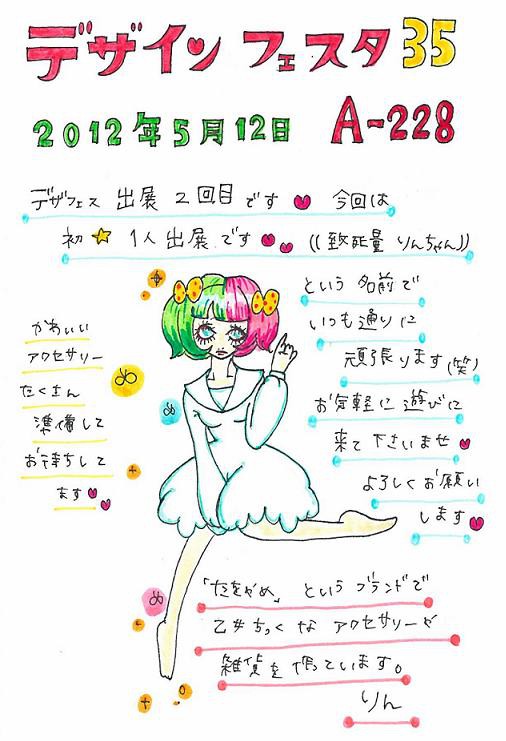 デザイン フェスタ 35
2012年5月12日 A-228
デザフェス 出展 2回目です 今回は
初 1人出展です ((致死量 りんちゃん))
という 名前で
いつも通りに
頑張ります(笑)
お気軽に 遊びに
来て 下さいませ
よろしくお願い
します
かわいい
アクセサリー
たくさん
準備して
お待ちして
ます
「たをやめ」 という ブランドで
乙女ちっくな アクセサリーや
雑貨を作っています。
りん